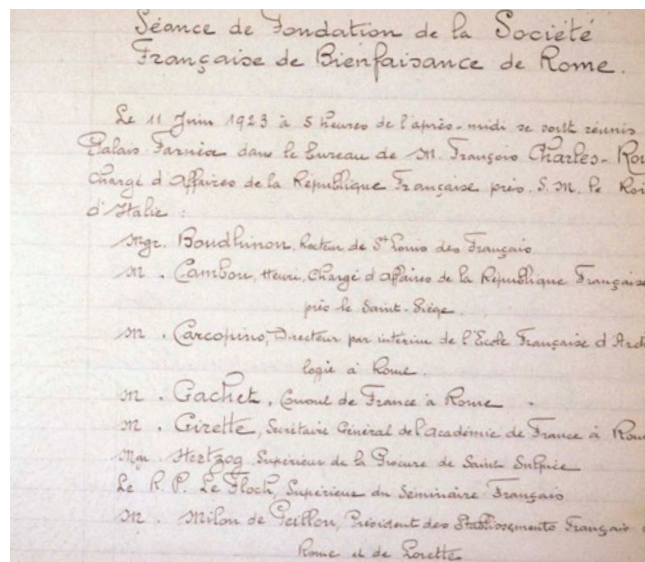 Séance de Fondation de la Société
Française de Bienfaisance de Rome.
Le 11 Juin 1923 à 5 heures de l'après-midi se sont réunis
Palais Farnèse dans le bureau de M. François Charles-Rou
Chargé d'Affaires de la République Française près S. M. le Roi
d'Italie :
Mgr. Boudhinon, Recteur de St Louis des Français
M. Cambon, Henri, Chargé d'affaires de la République Française
près le Saint-Siège.
M. Carcopino, Directeur par intérim de l'Ecole Française d'Arch
logie à Rome.
M. Gachet, Consul de France à Rome.
M. Girette, Secrétaire Général de l'académie de France à Rom
Mgr. Hertzog, Supérieur de la Procure de Saint Sulpice
Le R. P. Le Floch, Supérieur du Séminaire Français
M. Milon de Peillon, Président des Etablissements Français
Rome et de Lorette